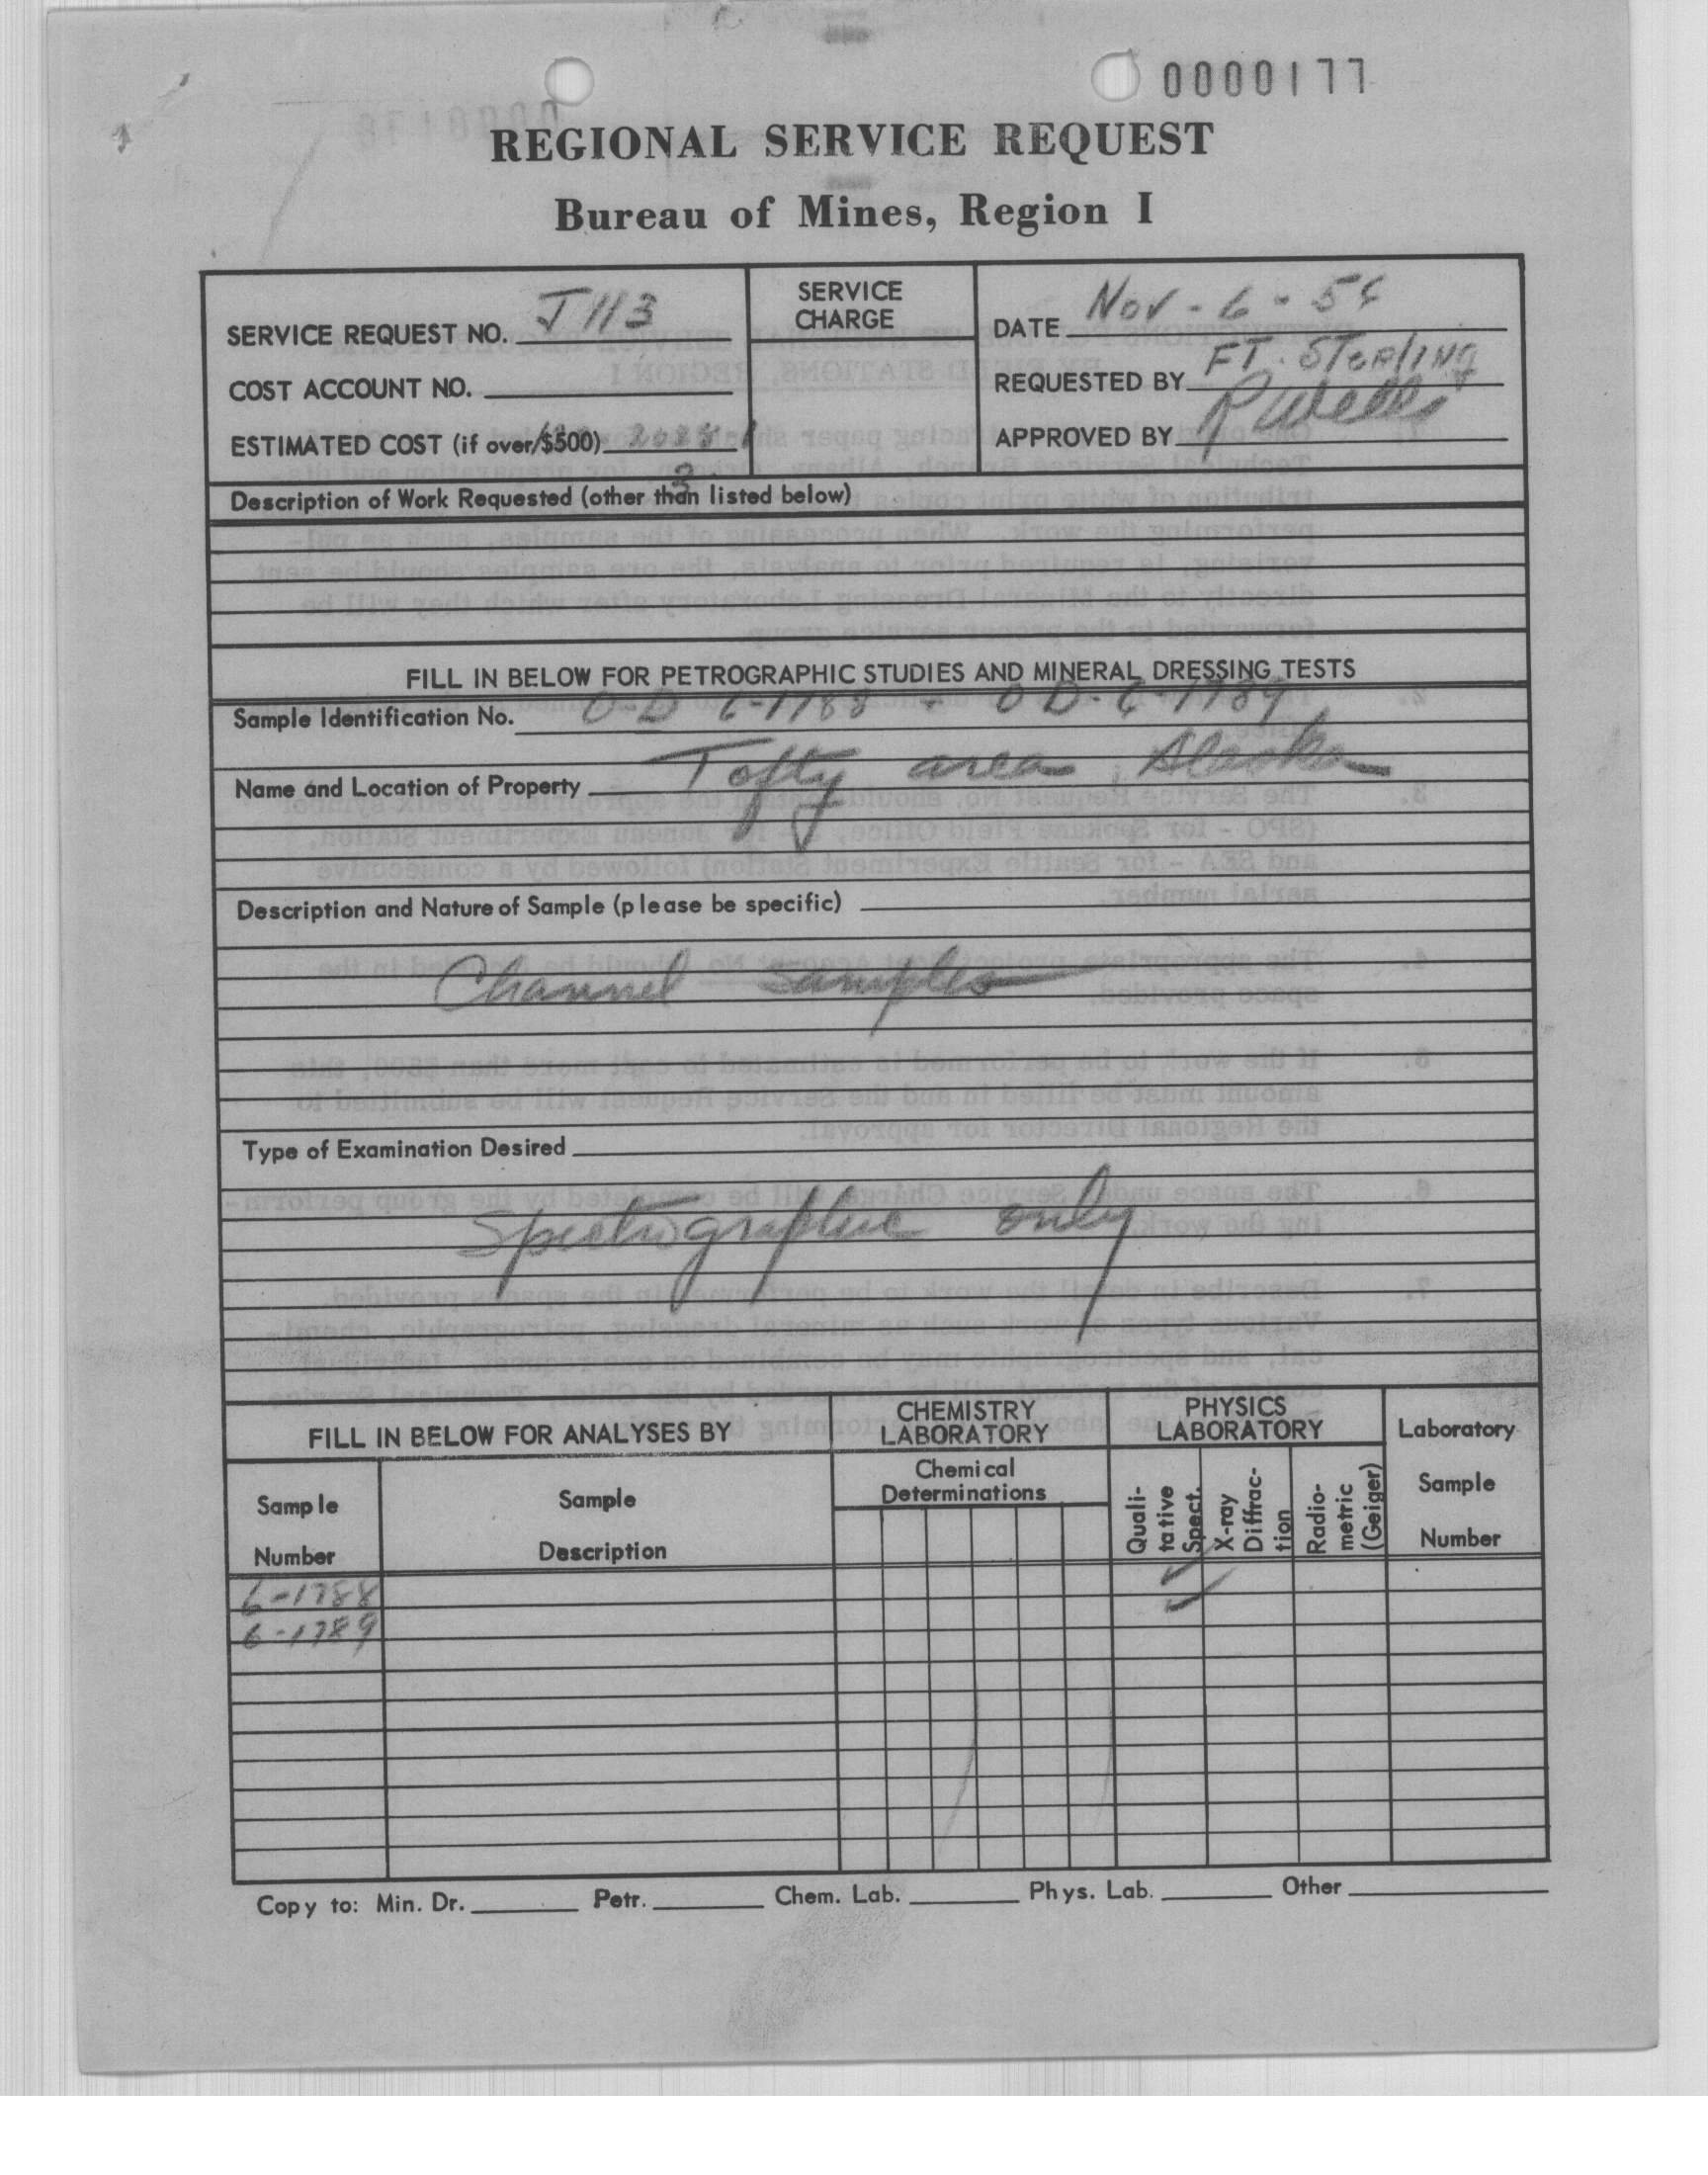 0000177
REGIONAL SERVICE REQUEST
Bureau of Mines, Region I
SERVICE REQUEST NO. J113
COST ACCOUNT NO.
ESTIMATED COST (if over $500)
SERVICE
CHARGE
DATE Nov-6-56
REQUESTED BY FT. STERLING
APPROVED BY
Description of Work Requested (other than listed below)
FILL IN BELOW FOR PETROGRAPHIC STUDIES AND MINERAL DRESSING TESTS
Sample Identification No. O-D 6-1788 - OD-6-1789
Name and Location of Property Tofty area, Alaska
Description and Nature of Sample (please be specific)
Channel samples
Type of Examination Desired
Spectrographic only
FILL IN BELOW FOR ANALYSES BY
CHEMISTRY
LABORATORY
PHYSICS
LABORATORY
Laboratory
Sample
Number
Sample
Number
Sample
Description
Chemical
Determinations
Quali-
tative
Spect.
X-ray
Diffrac-
tion
Radio-
metric
(Geiger)
6-1788 ✓
6-1789 ✓
Copy to: Min. Dr. Petr. Chem. Lab. Phys. Lab. Other